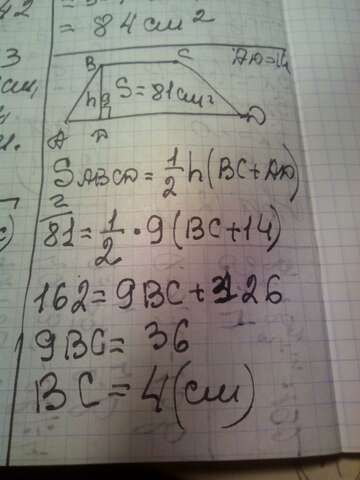 = 84 см²
B C
h 9 S = 81 см²
A D
S ABCD = 1/2 h (BC + AD)
81 = 1/2 · 9 (BC + 14)
162 = 9BC + 126
9BC = 36
BC = 4 (см)